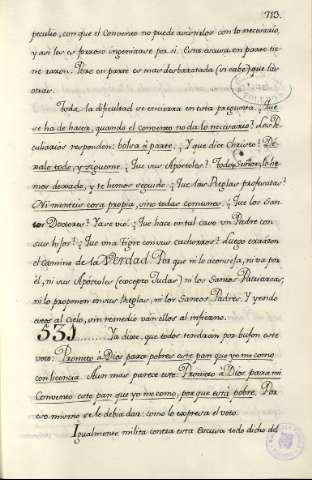 713.
peculio, con que el Convento no puede asistirlos con lo necesario,
y asi les es forzoso ingeniarse por sí. Esta escusa en parte tie-
ne razon. Pero en parte es mas desbaratada (si cabe) que las
otras.
Toda la dificultad se encierra en esta pregunta ¿Que
se ha de hacer, quando el convento no da lo necesario? Los Pe-
culiarios responden: bolsa à parte. ¿Y que dice Christo? De-
xalo todo, y sigueme. ¿Que sus Apostoles? Todo, Señor, lo he-
mos dexado, y te hemos seguido. ¿Que las Reglas profesadas?
Ni menteis cosa propia, sino todas comunes. ¿Que los San-
tos Doctores? Ya se vió. ¿Que hace en tal caso un Padre con
sus hijos? ¿Que una Tigre con sus cachorros? Luego erraron
el camino de la Verdad. Por que ni lo aconseja, ni va por
él, ni sus Apóstoles (excepto Judas) ni los Santos Patriarcas,
ni lo proponen en sus Reglas, ni los Santos Padres. Y yendo
estos al Cielo, sin remedio ván ellos al infierno.
531. Ya dixe, que todos tendrán por bufon este
voto: Prometo à Dios para pobres este pan que yo me como
con licencia. Aun mas parece este: Prometo à Dios para mi
Convento este pan que yo me como, por que está pobre. Por
eso mismo se le debia dar: como lo expresa el voto.
Igualmente milita contra esta Escusa todo dicho del